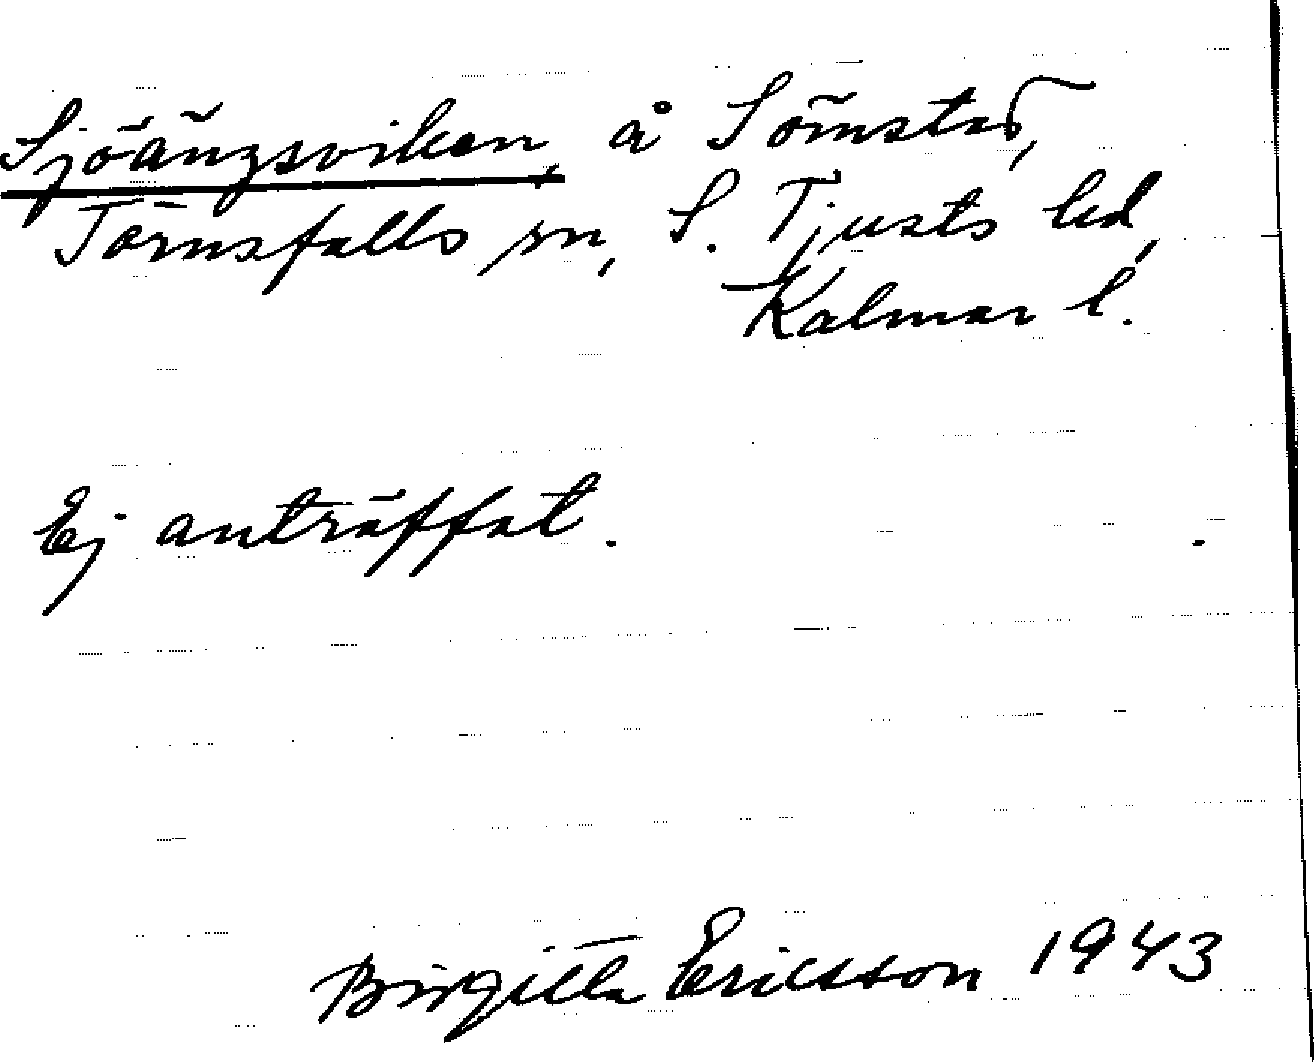 Sjöängsviken, å Sömstad,
Törnsfalls sn, S. Tjusts hd,
Kalmar l.
Ej anträffat.
Birgitta Ericsson 1943